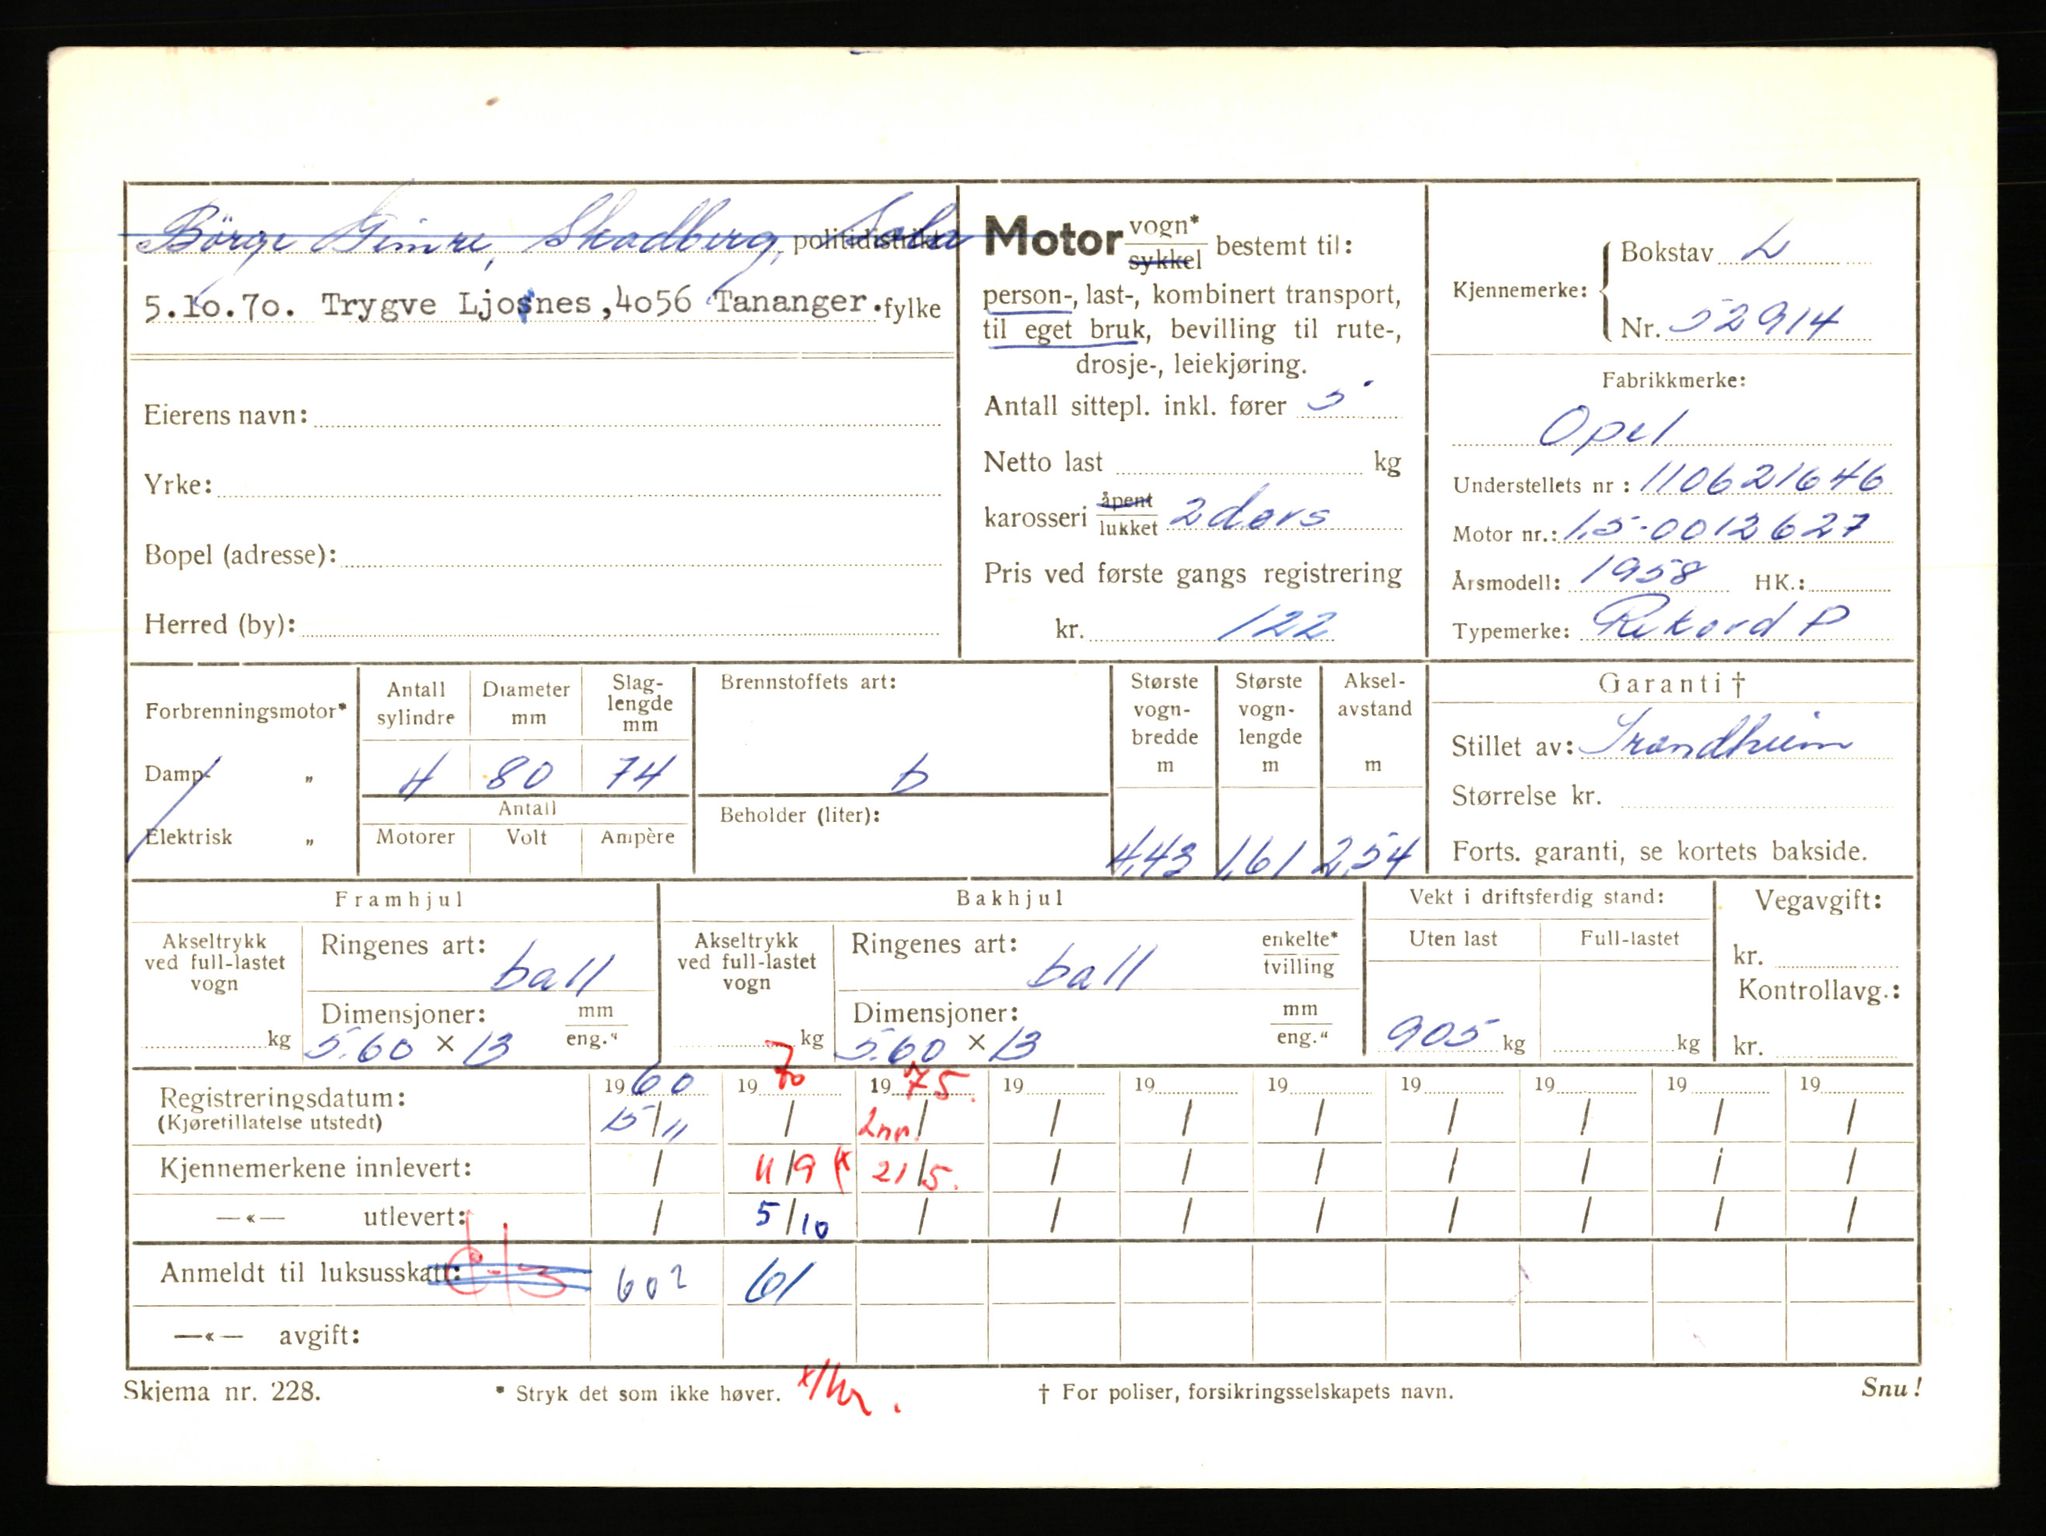 Börge Gimre, Skadberg, Sola politidistrikt
5.10.70. Trygve Ljosnes, 4056 Tananger. fylke
Eierens navn:
Yrke:
Bopel (adresse):
Herred (by):
Motor vogn* sykkel bestemt til:
person-, last-, kombinert transport,
til eget bruk, bevilling til rute-,
drosje-, leiekjøring.
Antall sittepl. inkl. fører 5
Netto last kg
karosseri åpent lukket 2 dørs
Pris ved første gangs registrering
kr. 122
Kjennemerke: Bokstav L
Nr. 52914
Fabrikkmerke:
Opel
Understellets nr: 110621646
Motor nr.: 1,5-0012627
Årsmodell: 1958 HK.:
Typemerke: Rekord P
Forbrenningsmotor*
Damp- "
Elektrisk "
Antall sylindre Diameter mm Slaglengde mm
4 80 74
Antall
Motorer Volt Ampère
Brennstoffets art:
b
Beholder (liter):
Største vognbredde m Største vognlengde m Akselavstand m
4,43 1,61 2,54
Garanti †
Stillet av: Trondheim
Størrelse kr.
Forts. garanti, se kortets bakside.
Framhjul
Akseltrykk ved full-lastet vogn
kg
Ringenes art: ball
Dimensjoner: mm eng."
5.60 x 13
Bakhjul
Akseltrykk ved full-lastet vogn
kg
Ringenes art: ball enkelte* tvilling
Dimensjoner: mm eng."
5.60 x 13
Vekt i driftsferdig stand:
Uten last Full-lastet
905 kg kg
Vegavgift:
kr.
Kontrollavg.:
kr.
19 60 19 70 19 75. 19 19 19 19 19 19 19
Registreringsdatum: 15/11 / 2nr. / / / / / / / /
(Kjøretillatelse utstedt)
Kjennemerkene innlevert: / 11/9 x 21/5. / / / / / / /
—«— utlevert: / 5/10 / / / / / / / /
Anmeldt til luksusskatt: 602 61
—«— avgift:
Skjema nr. 228. * Stryk det som ikke høver. † For poliser, forsikringsselskapets navn. Snu!